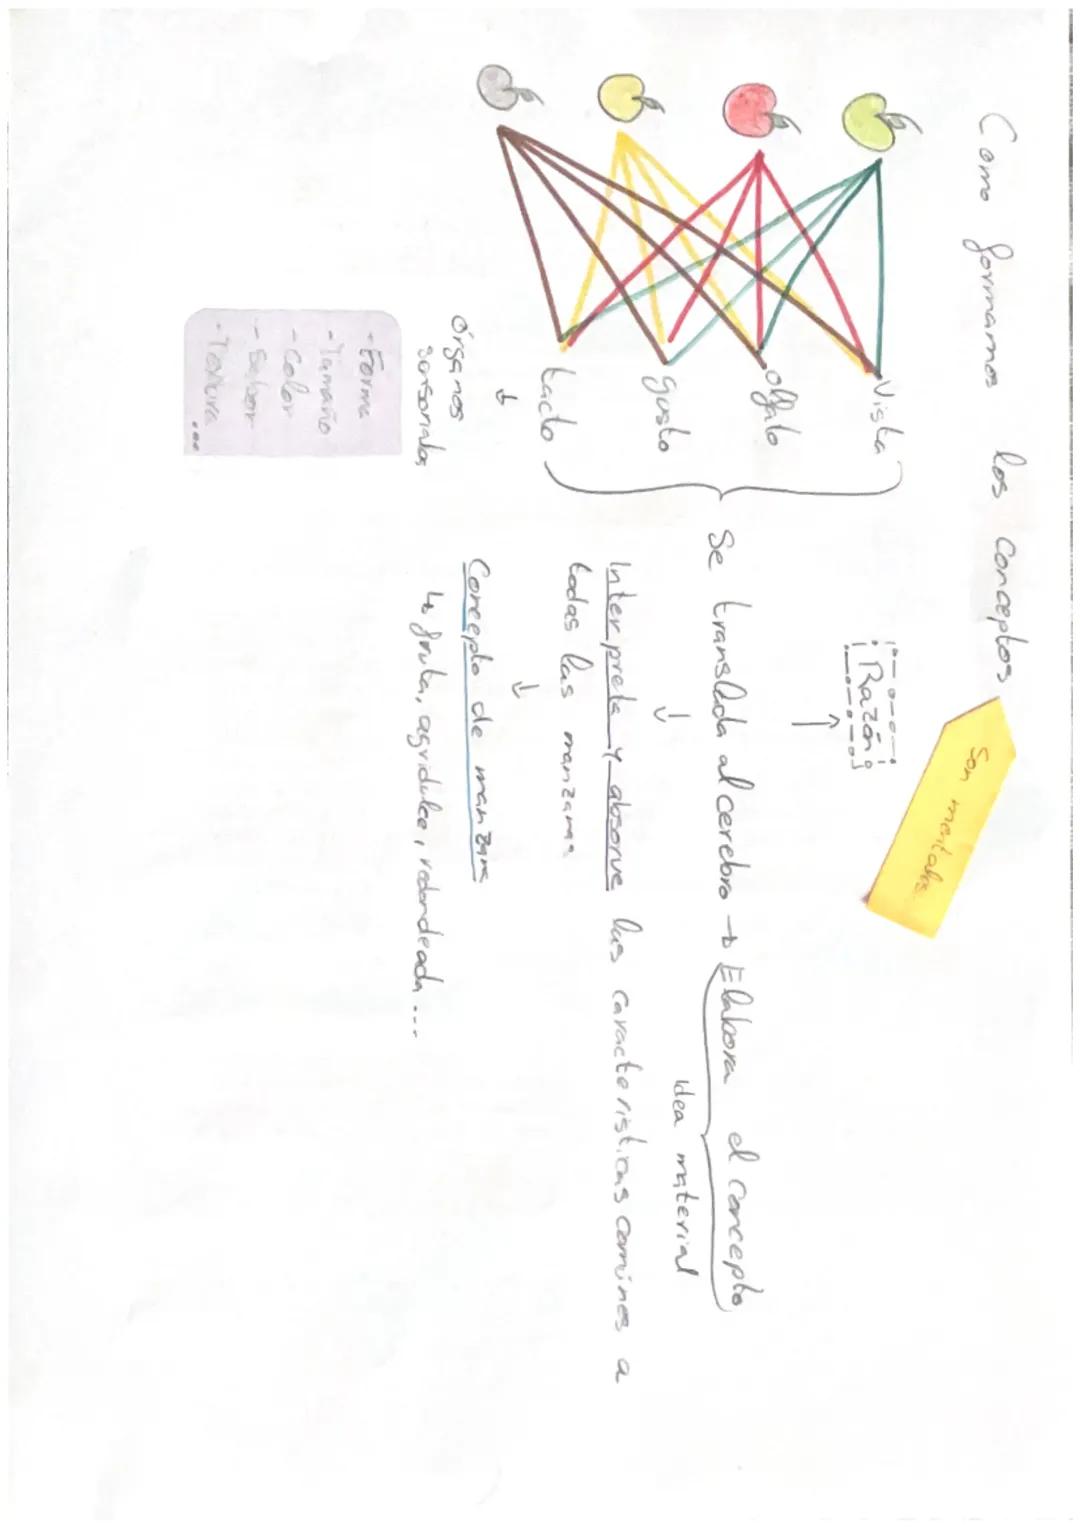 Como formamos los conceptos
Son mentales.
Razón
Vista
olfato
gusto
tacto
↓
órganos
sensoriales
- Forma
- Tamaño
- Color
- Sabor
- Textura
...
Se translada al cerebro → Elabora el concepto
idea material
↓
Interpreta y absorve las caracteristicas comúnes a
todas las manzanas
↓
Concepto de manzana
↳ fruta, agridulce, redondeada...